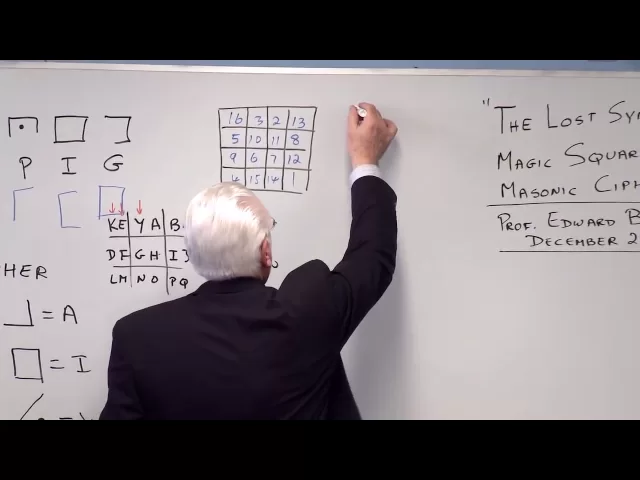 P I G
HER
⅃ = A
= I
KE Y A B
DF GH IJ
LM NO PQ
16 3 2 13
5 10 11 8
9 6 7 12
4 15 14 1
"THE LOST SY
MAGIC SQUAR
MASONIC CIPH
PROF. EDWARD B
DECEMBER 2